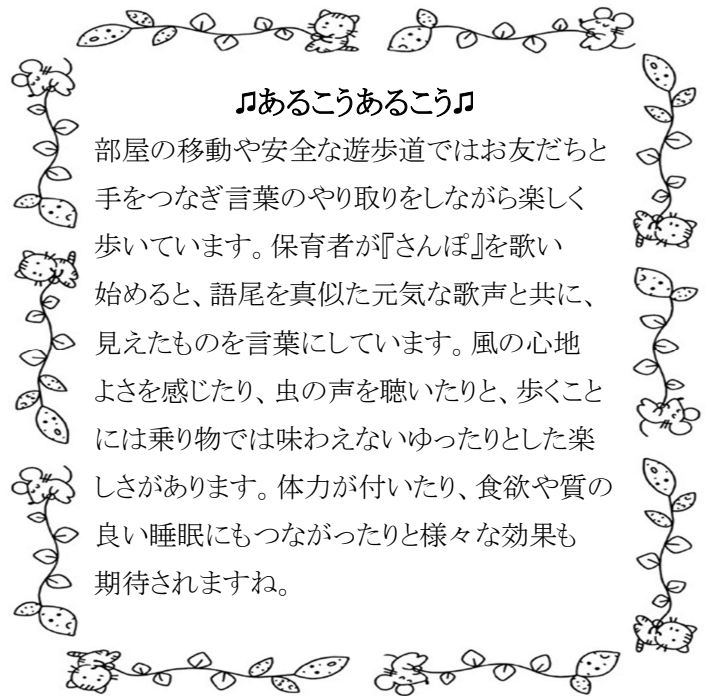 ♫あるこうあるこう♫
部屋の移動や安全な遊歩道ではお友だちと
手をつなぎ言葉のやり取りをしながら楽しく
歩いています。保育者が『さんぽ』を歌い
始めると、語尾を真似た元気な歌声と共に、
見えたものを言葉にしています。風の心地
よさを感じたり、虫の声を聴いたりと、歩くこと
には乗り物では味わえないゆったりとした楽
しさがあります。体力が付いたり、食欲や質の
良い睡眠にもつながったりと様々な効果も
期待されますね。